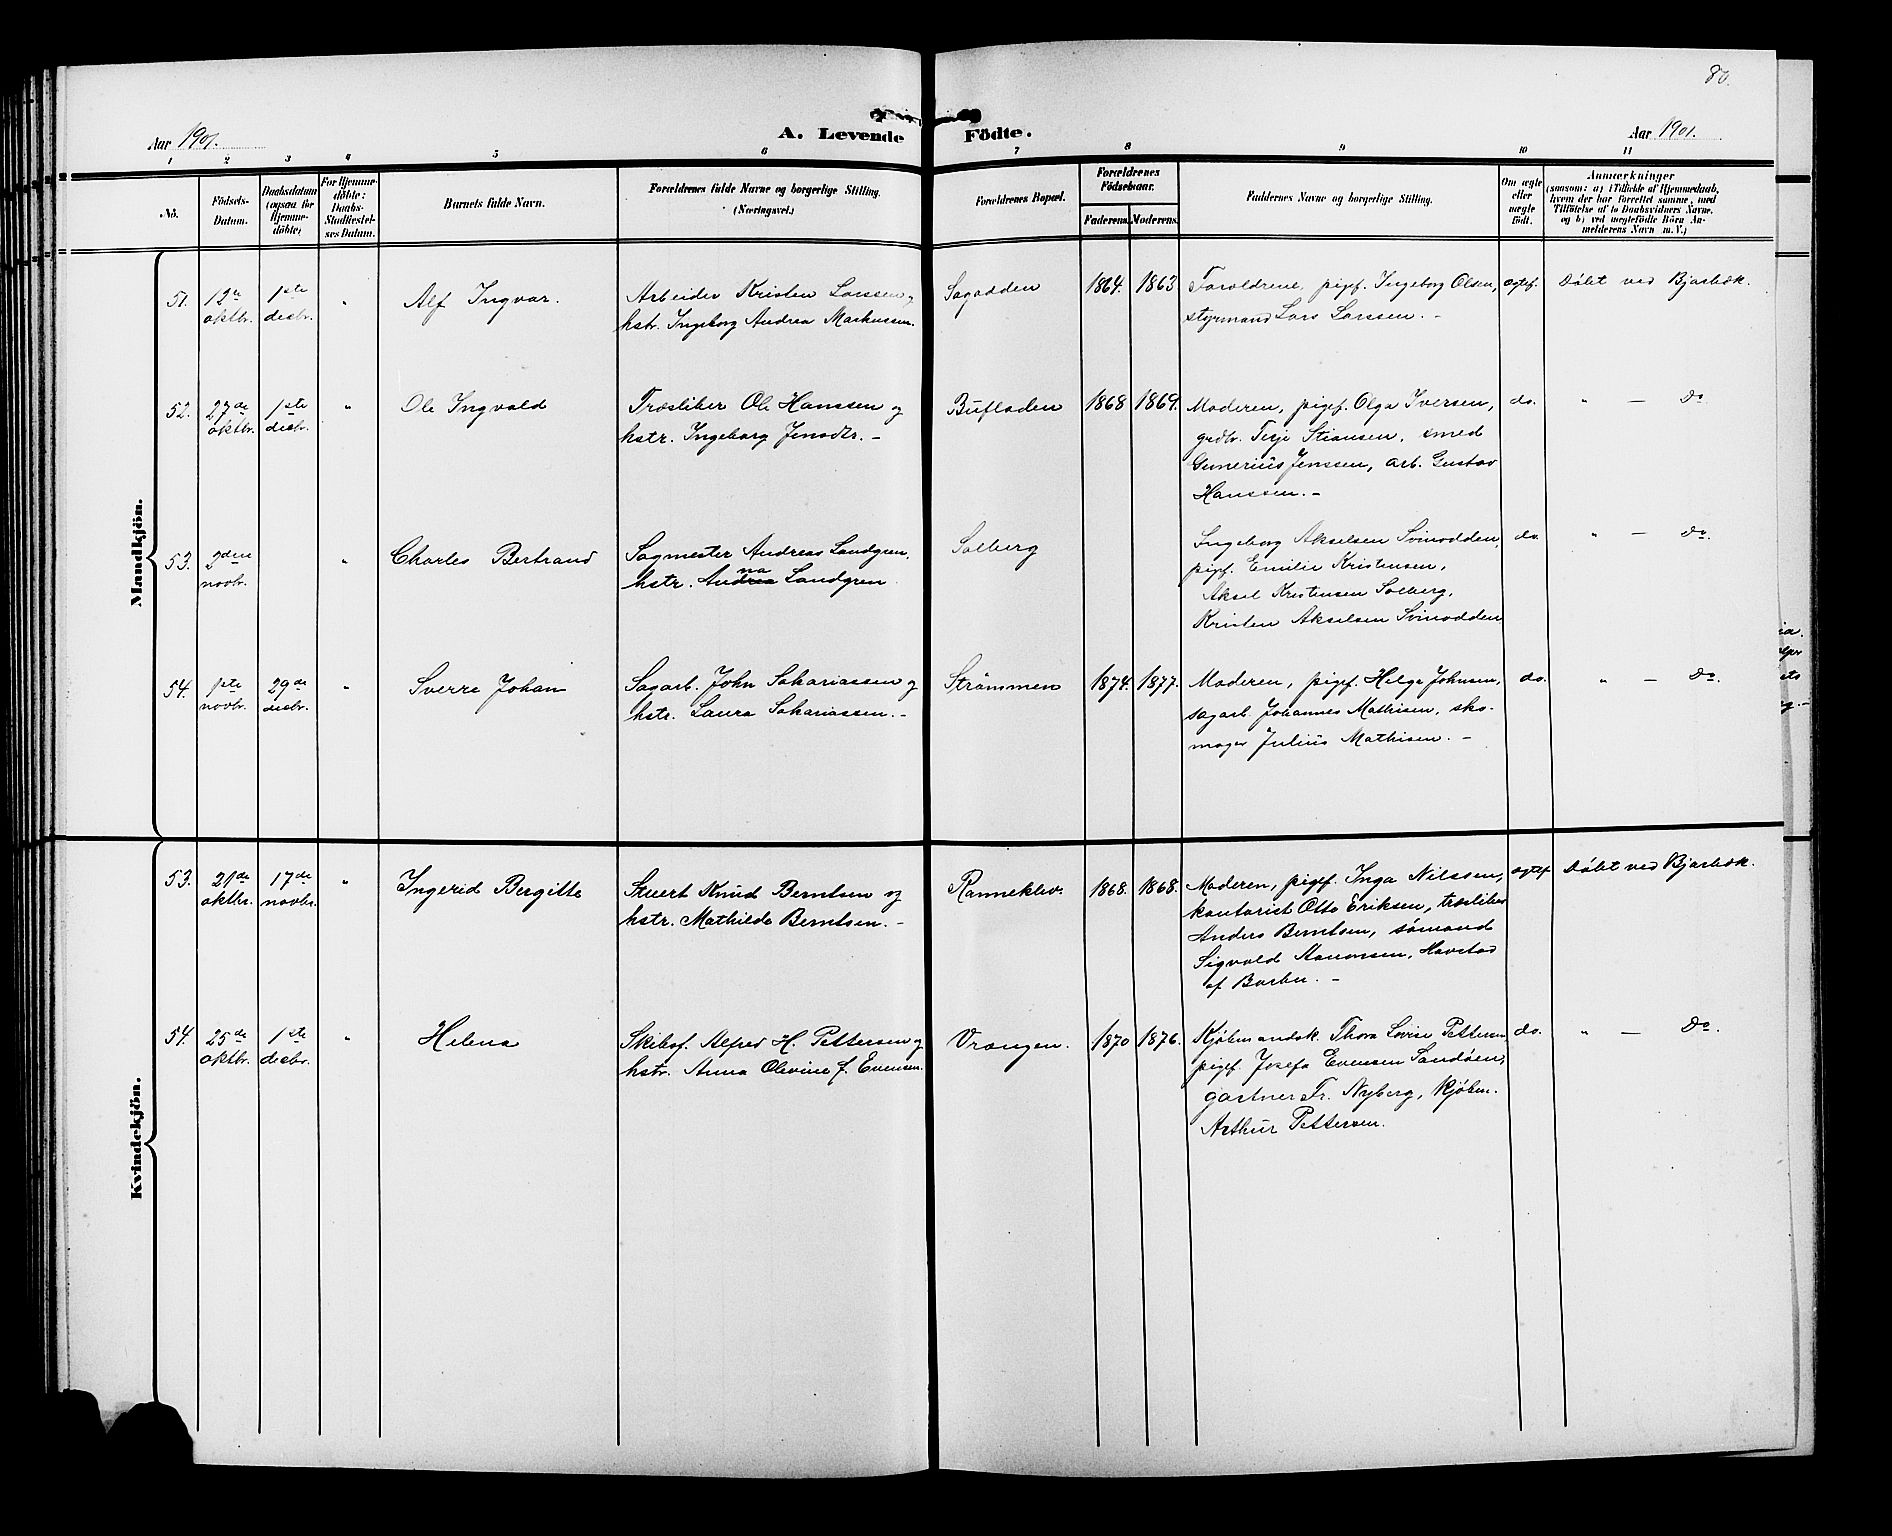 80.
Aar 1901.
A. Levende Födte.
Aar 1901.
1 2 3 4 5 6 7 8 9 10 11
No.
Födsels-Datum.
Daabsdatum (ogsaa for Hjemme-döbte)
For Hjemme-döbte: Daabs-Stadfæstel-ses Datum.
Barnets fulde Navn.
Forældrenes fulde Navne og borgerlige Stilling.
(Næringsvei.)
Forældrenes Bopæl.
Forældrenes Födselsaar.
Faderens. Moderens.
Faddernes Navne og borgerlige Stilling.
Om ægte eller uægte födt.
Anmærkninger
(saasom: a) i Tilfælde af Hjemmedaab,
hvem der har forrettet samme, med
Tilföielse af to Daabsvidners Navne,
og b) ved uægtefödte Börn An-
melderens Navn m. V.)
Mandkjön.
51. 12te oktbr. 1ste desbr. " Alf Ingvar.
Arbeider Kristen Larssen og
hstr. Ingeborg Andrea Markussen.
Sagodden 1864. 1863
Forældrene, pigef. Ingeborg Olsen,
styrmand Lars Larssen. -
ægtef. Döbt ved Bjarbæk.
52. 27de oktbr. 1ste desbr. " Ole Ingvald
Træsliber Ole Hanssen og
hstr. Ingeborg Jensdtr. -
Bufladen 1868 1869.
Moderen, pigef. Olga Iversen,
grdbr. Terje Stiansen, smed
Gunerius Jenssen, arb. Gustav
Hanssen. -
do. " — Do.
53. 2den novbr. " Charles Bertrand
Sagmester Andreas Landgren,
hstr. Andrea na Landgren
Solberg
Ingeborg Akselsen Svinodden,
pigef. Emilie Kristensen,
Aksel Kristensen Solberg,
Kristen Akselsen Svinodden
do. " — Do.
54. 1ste novbr. 29de desbr. " Sverre Johan
Sagarb. John Sakariassen og
hstr. Laura Sakariassen. -
Strömmen 1874. 1877.
Moderen, pigef. Helga Johnsen,
sagarb. Johannes Mathisen, sko-
mager Julius Mathisen. -
do. " — Do.
Kvindekjön.
53. 21de oktbr. 17de novbr. " Ingerid Bergitte
Stuert Knud Berntsen og
hstr. Mathilde Berntsen. -
Ranneklev. 1868. 1868.
Moderen, pigef. Inga Nilssen,
kontorist Otto Eriksen, træsliber
Anders Berntsen, sömand
Sigvald Aanonsen, Havstad
af Barbu. -
ægtef. Döbt ved Bjarbæk.
54. 25de oktbr. 1ste desbr. " Helena
Skibsf. Alfred H. Pettersen og
hstr. Anna Olevine f. Evensen.
Vrangen. 1870 1876.
Kjøbmandsk. Thora Lovise Pettersen
pigef. Josefa Evensen Sandöen,
gartner Fr. Nyberg, Kjöbm.
Arthur Pettersen.
do. " — Do.